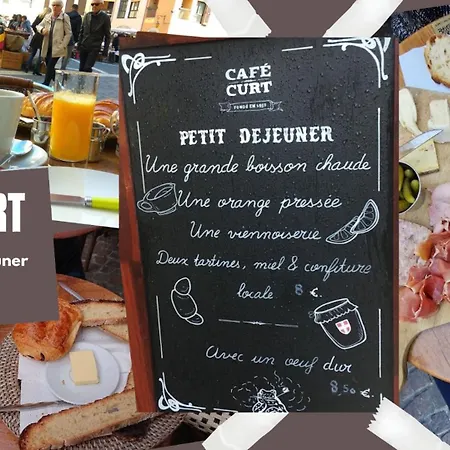 CAFÉ
CURT
FONDÉ EN 1917
PETIT DEJEUNER
Une grande boisson chaude
Une orange pressée
Une viennoiserie
Deux tartines, miel & confiture
locale 8 €.
Avec un oeuf dur
8,50 €
RT
uner